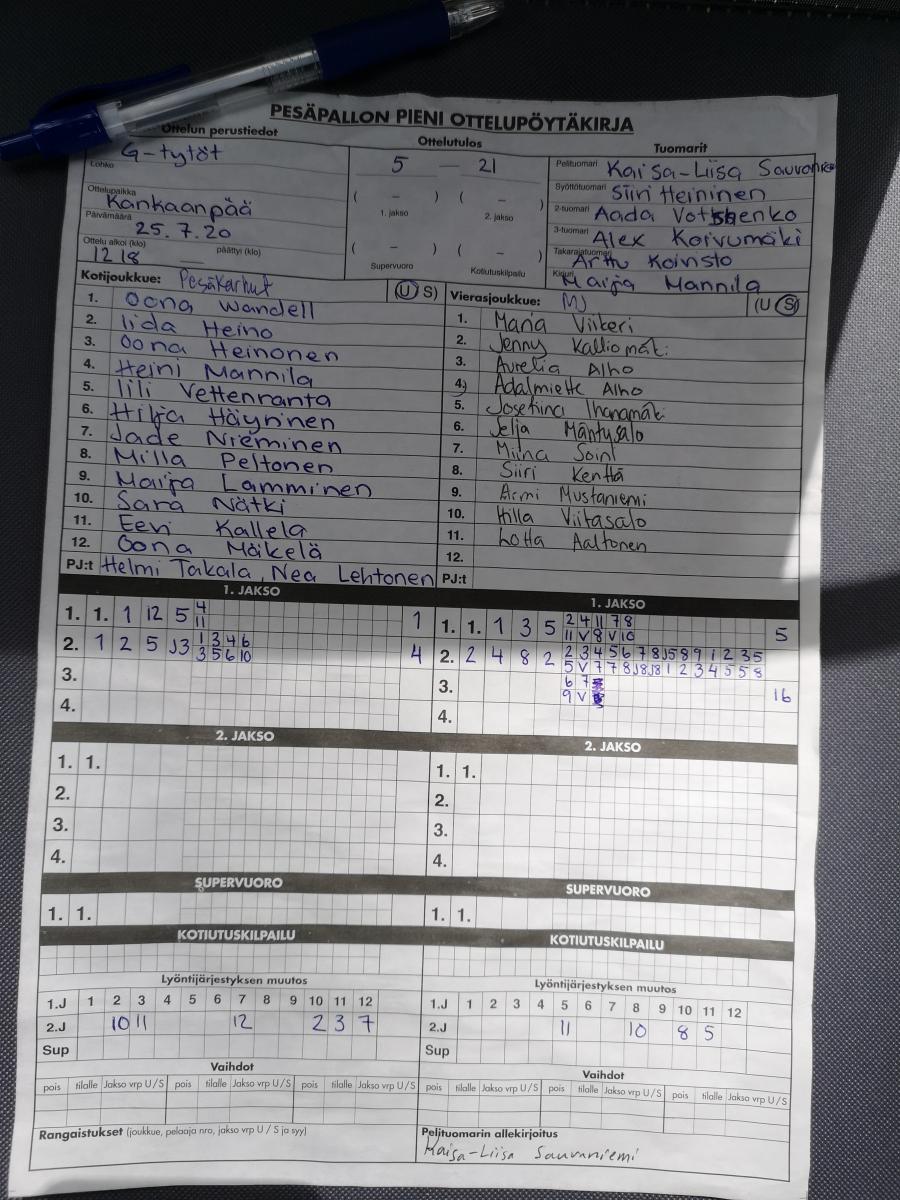 PESÄPALLON PIENI OTTELUPÖYTÄKIRJA
Ottelun perustiedot
G-tytöt
Lohko
Ottelupaikka
Kankaanpää
Päivämäärä
25.7.20
Ottelu alkoi (klo) päättyi (klo)
12 18
Ottelutulos
5 — 21
( – ) ( – )
1. jakso 2. jakso
( – ) ( – )
Supervuoro Kotiutuskilpailu
Tuomarit
Pelituomari Kaisa-Liisa
Syöttötuomari Siiri Heininen
2-tuomari Aada
3-tuomari Alex Koivumäki
Takarajatuomari Arttu Koivisto
Kirjuri Maija Mannila
Kotijoukkue: Pesäkarhut (U S)
1. Oona Wandell
2. Iida Heino
3. Oona Heinonen
4. Heini Mannila
5. Iili Vettenranta
6. Hilja Häyrinen
7. Jade Nieminen
8. Milla Peltonen
9. Maija Lamminen
10. Sara Nätki
11. Eevi Kallela
12. Oona Mäkelä
PJ:t Helmi Takala, Nea Lehtonen
Vierasjoukkue: MJ (U S)
1. Maria Viikeri
2. Jenny Kalliomäki
3. Aurelia Alho
4. Adalmiette Alho
5. Josefiina Ihanamäki
6. Mäntysalo
7. Miina Soini
8. Siiri Kenttä
9. Armi Mustaniemi
10. Hilla Viitasalo
11. Lotta Aaltonen
12.
PJ:t
1. JAKSO
1. 1. 1 12 5 4 1
11
2. 1 2 5 J3 1 3 4 6 4
3 5 6 10
3.
4.
1. JAKSO
1. 1. 1 3 5 2 4 11 7 8 5
11 V 8 V 10
2. 2 4 8 2 2 3 4 5 6 7 8 J5 8 9 1 2 3 5
5 V 7 7 8 J8 J8 1 2 3 4 5 5 8
3. 6 7 16
9 V
4.
2. JAKSO
1. 1.
2.
3.
4.
2. JAKSO
1. 1.
2.
3.
4.
SUPERVUORO
1. 1.
SUPERVUORO
1. 1.
KOTIUTUSKILPAILU
Lyöntijärjestyksen muutos
1.J 1 2 3 4 5 6 7 8 9 10 11 12
2.J 10 11 12 2 3 7
Sup
Vaihdot
pois tilalle Jakso vrp U/S pois tilalle Jakso vrp U/S pois tilalle Jakso vrp U/S
Rangaistukset (joukkue, pelaaja nro, jakso vrp U / S ja syy)
KOTIUTUSKILPAILU
Lyöntijärjestyksen muutos
1.J 1 2 3 4 5 6 7 8 9 10 11 12
2.J 11 10 8 5
Sup
Vaihdot
pois tilalle Jakso vrp U/S pois tilalle Jakso vrp U/S pois tilalle Jakso vrp U/S
Pelituomarin allekirjoitus
Kaisa-Liisa Sauvaniemi